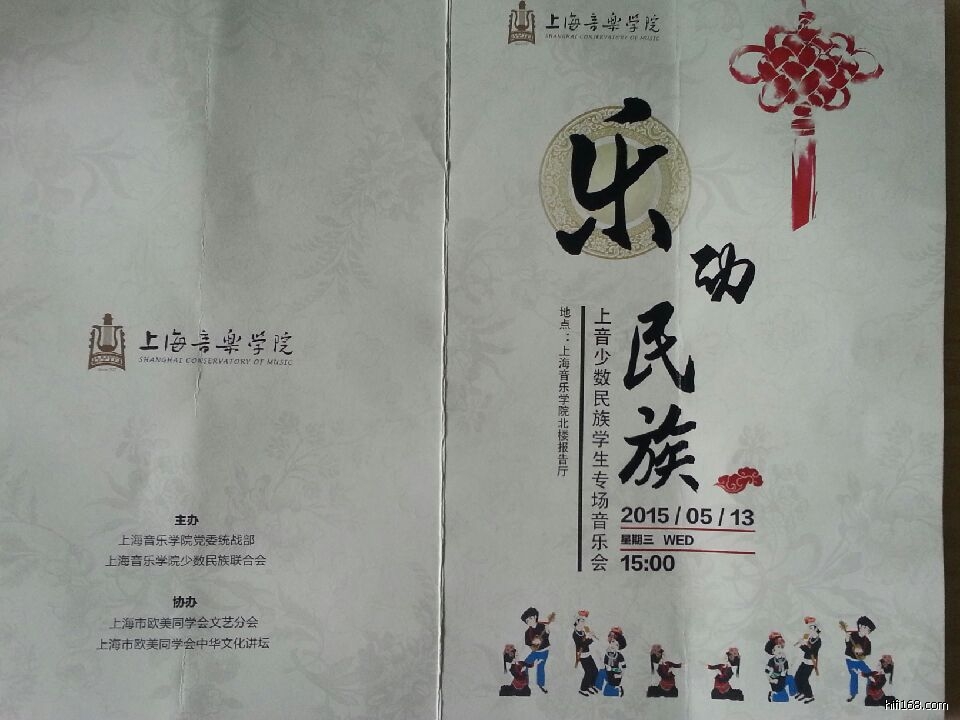 上海音樂学院
SHANGHAI CONSERVATORY OF MUSIC
主办
上海音乐学院党委统战部
上海音乐学院少数民族联合会
协办
上海市欧美同学会文艺分会
上海市欧美同学会中华文化讲坛
上海音樂学院
SHANGHAI CONSERVATORY OF MUSIC
乐动民族
上音少数民族学生专场音乐会
地点：上海音乐学院北楼报告厅
2015 / 05 / 13
星期三 WED
15:00
hifi168.com